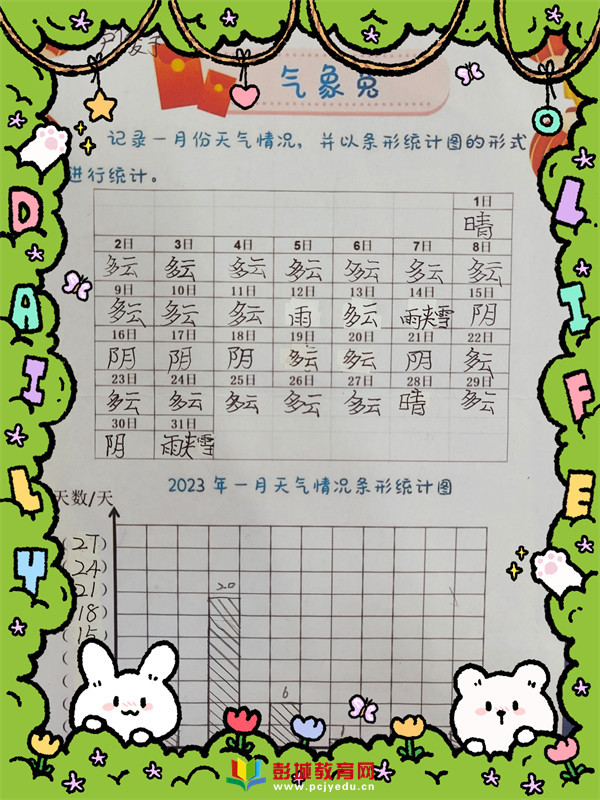 气象兔
记录一月份天气情况，并以条形统计图的形式
进行统计。
1日
晴
2日 3日 4日 5日 6日 7日 8日
多云 多云 多云 多云 多云 多云 多云
9日 10日 11日 12日 13日 14日 15日
多云 多云 多云 雨 多云 雨夹雪 阴
16日 17日 18日 19日 20日 21日 22日
阴 阴 阴 多云 多云 阴 多云
23日 24日 25日 26日 27日 28日 29日
多云 多云 多云 多云 多云 晴 多云
30日 31日
阴 雨夹雪
2023年一月天气情况条形统计图
天数/天
(27)
(24)
21)
18)
15)
20
6
DAILY
LIFE
彭城教育网
www.pcjyedu.cn